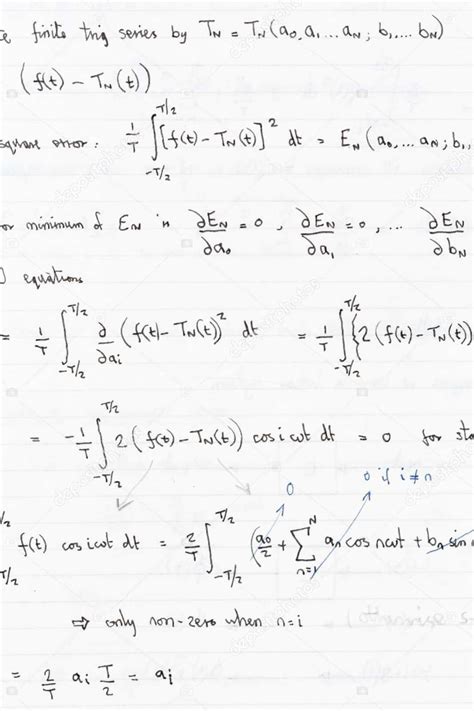 finite trig series by T_N = T_N (a_0, a_1 ... a_N ; b_1 ... b_N)
(f(t) - T_N(t))
square error : 1/T ∫_{-T/2}^{T/2} [f(t) - T_N(t)]^2 dt = E_N (a_0, ... a_N ; b_1,
or minimum of E_N is ∂E_N/∂a_0 = 0 , ∂E_N/∂a_1 = 0 , ... ∂E_N/∂b_N
equations
= 1/T ∫_{-T/2}^{T/2} ∂/∂a_i (f(t) - T_N(t))^2 dt = 1/T ∫_{-T/2}^{T/2} {2 (f(t) - T_N(t))
= -1/T ∫_{-T/2}^{T/2} 2 (f(t) - T_N(t)) cos iωt dt = 0 for sta
0 0 if i≠n
T/2 f(t) cos iωt dt = 2/T ∫_{-T/2}^{T/2} (a_0/2 + Σ_{n=1}^{N} a_n cos nωt + b_n sin
⇒ only non-zero when n=i
= 2/T a_i T/2 = a_i